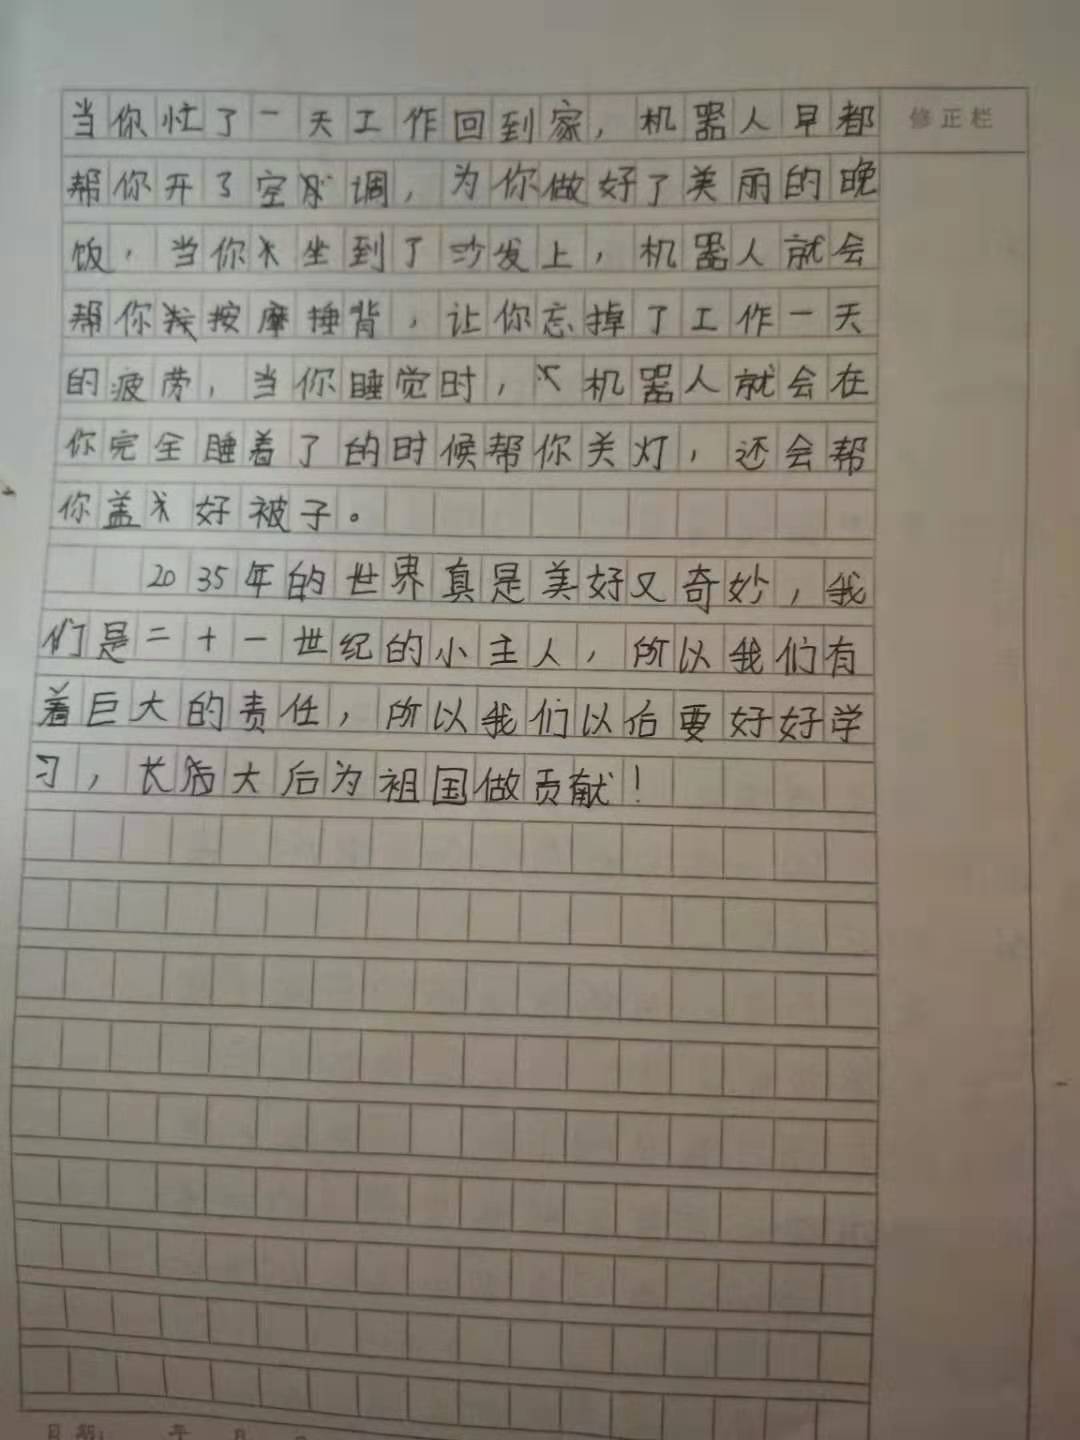 当你忙了一天工作回到家，机器人早都
修正栏
帮你开了空调，为你做好了美丽的晚
饭，当你坐到了沙发上，机器人就会
帮你按摩捶背，让你忘掉了工作一天
的疲劳，当你睡觉时，机器人就会在
你完全睡着了的时候帮你关灯，还会帮
你盖好被子。
2035年的世界真是美好又奇妙，我
们是二十一世纪的小主人，所以我们有
着巨大的责任，所以我们以后要好好学
习，长大后为祖国做贡献！
日期： 年 月